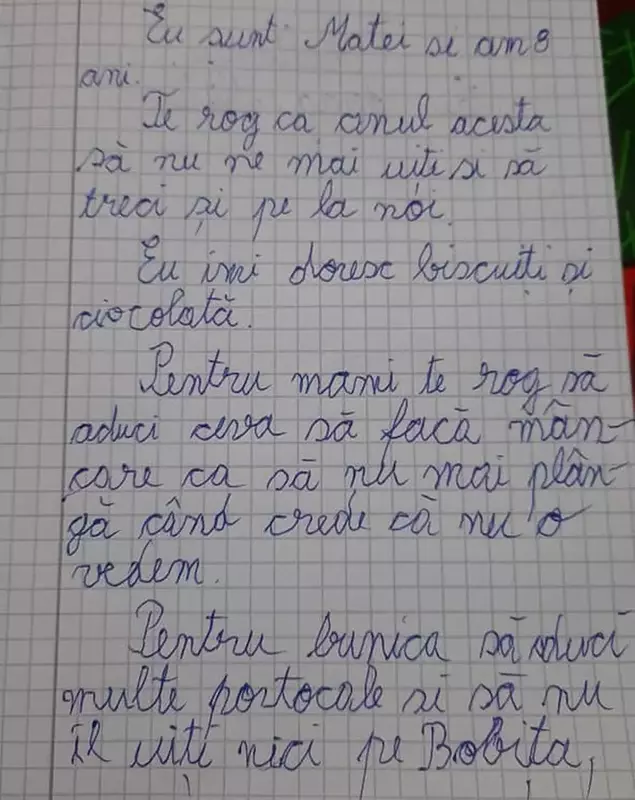 Eu sunt Matei si am 8
ani.
Te rog ca anul acesta
să nu ne mai uiți si să
treci și pe la noi.
Eu imi doresc biscuiți și
ciocolată.
Pentru mami te rog să
aduci ceva să facă mân-
care ca să nu mai plân-
gă când crede că nu o
vedem.
Pentru bunica să aduci
multe portocale si să nu
îl uiți nici pe Bobița,